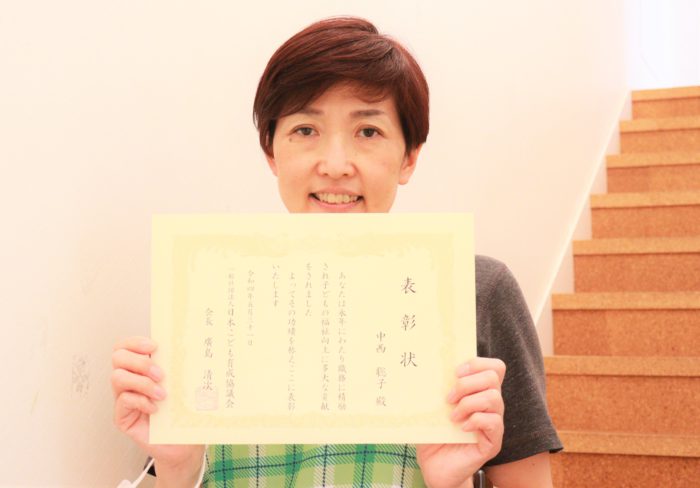 表彰状
中西 聡子 殿
あなたは永年にわたり職務に精励
され子どもの福祉向上に多大な貢献
をされました
よってその功績を称えここに表彰
いたします
令和四年五月三十一日
一般社団法人日本こども育成協議会
会長 廣島 清次